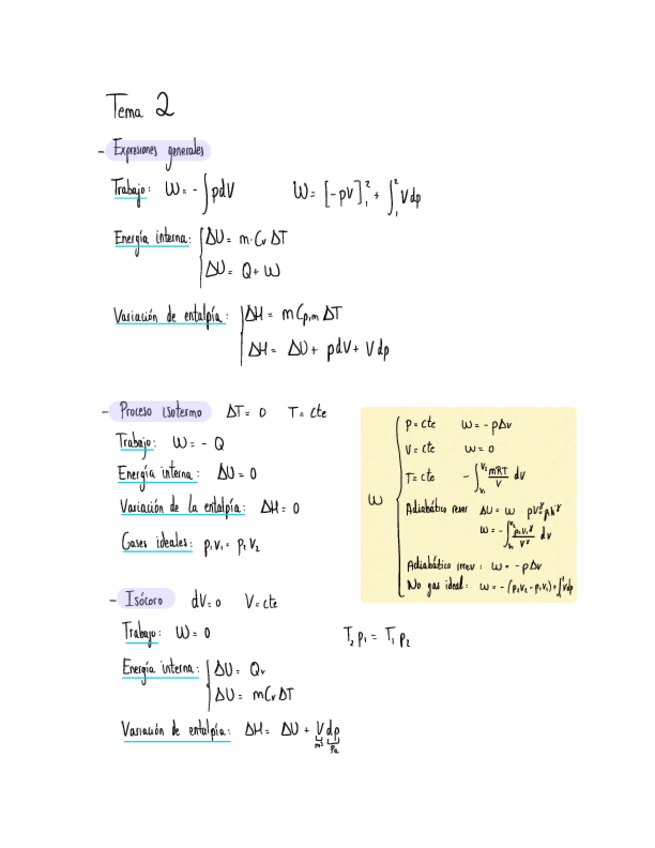 Tema 2
- Expresiones generales
Trabajo: W = - ∫ pdV     W = [-pV]₁² + ∫₁² Vdp
Energía interna: ΔU = m·Cv ΔT
ΔU = Q + W
Variación de entalpía: ΔH = m Cp,m ΔT
ΔH = ΔU + pdV + Vdp
- Proceso isotermo   ΔT = 0   T = cte
Trabajo: W = - Q
Energía interna: ΔU = 0
Variación de la entalpía: ΔH = 0
Gases ideales: p₁V₁ = p₂V₂
W
p = cte   W = - pΔv
V = cte   W = 0
T = cte   - ∫ mRT/V dv
Adiabático rever   ΔU = W
W = - ∫ p₁V₁^γ/V^γ dv
Adiabático irrev : W = - pΔv
No gas ideal: W = - (p₂V₂ - p₁V₁) + ∫ Vdp
- Isócoro   dV = 0   V = cte
Trabajo: W = 0
T₂ p₁ = T₁ p₂
Energía interna: ΔU = Qv
ΔU = mCv ΔT
Variación de entalpía: ΔH = ΔU + V dp
m³ Pa